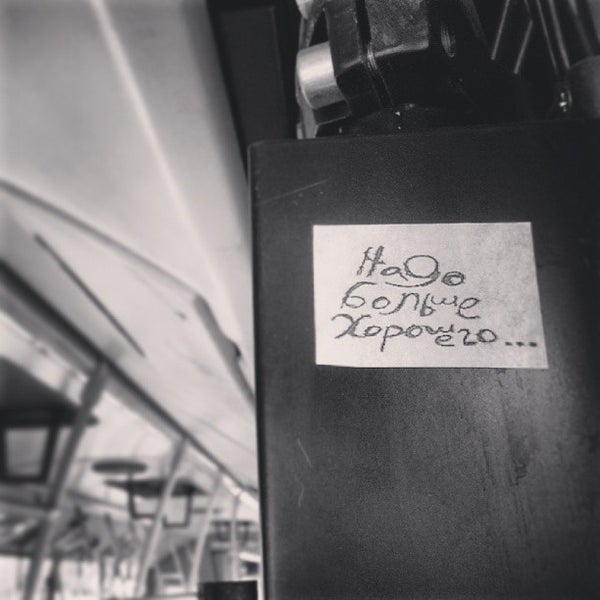 Надо
Больше
Хорошего...